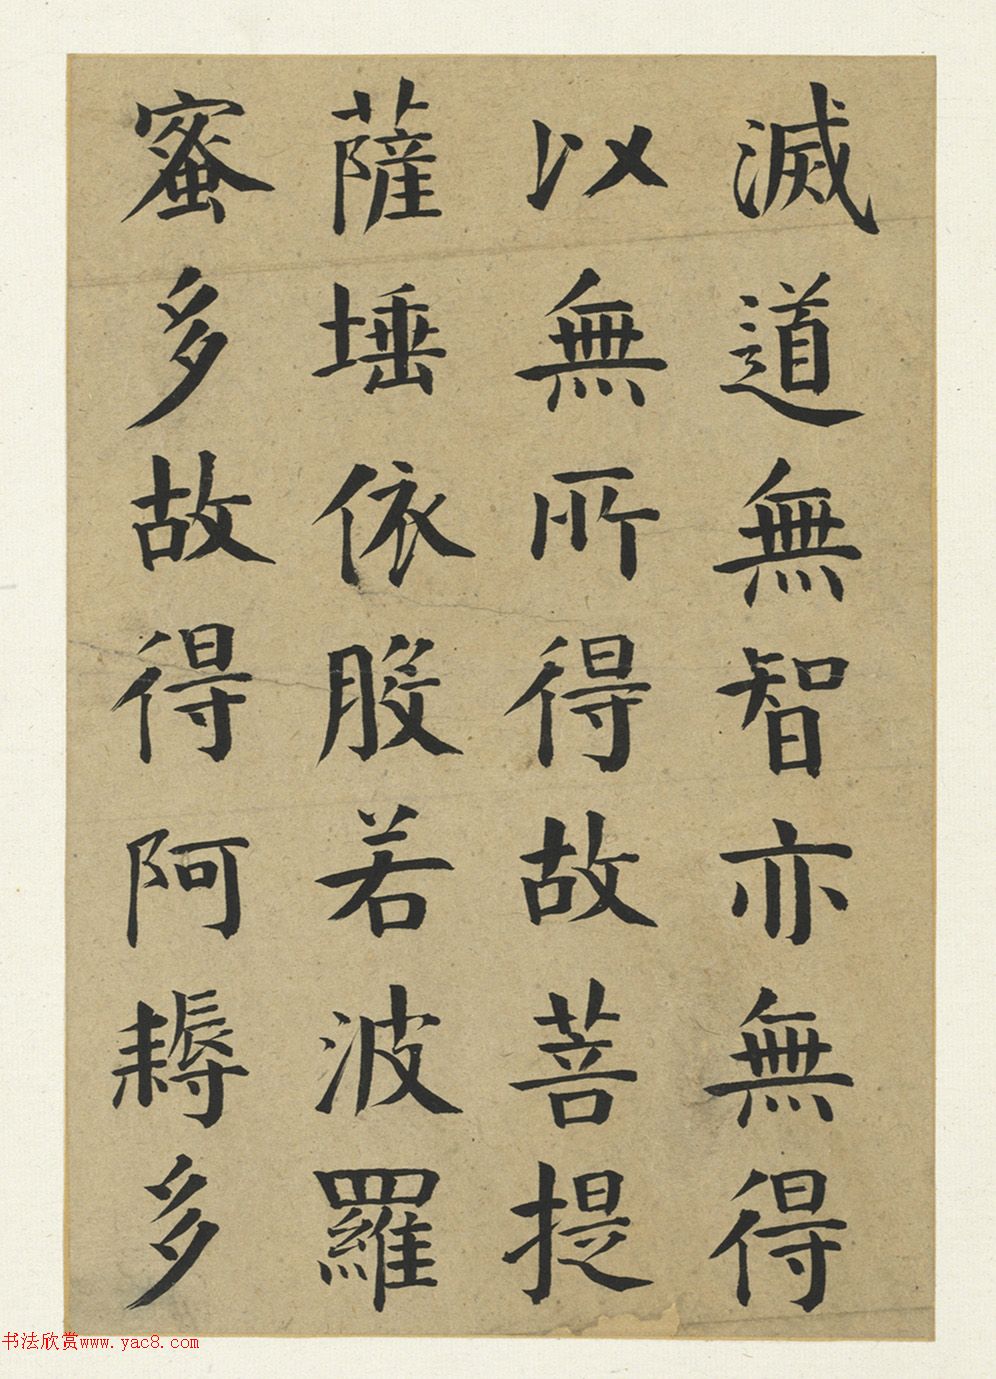 滅道無智亦無得
以無所得故菩提
薩埵依般若波羅
蜜多故得阿耨多
书法欣赏www.yac8.com